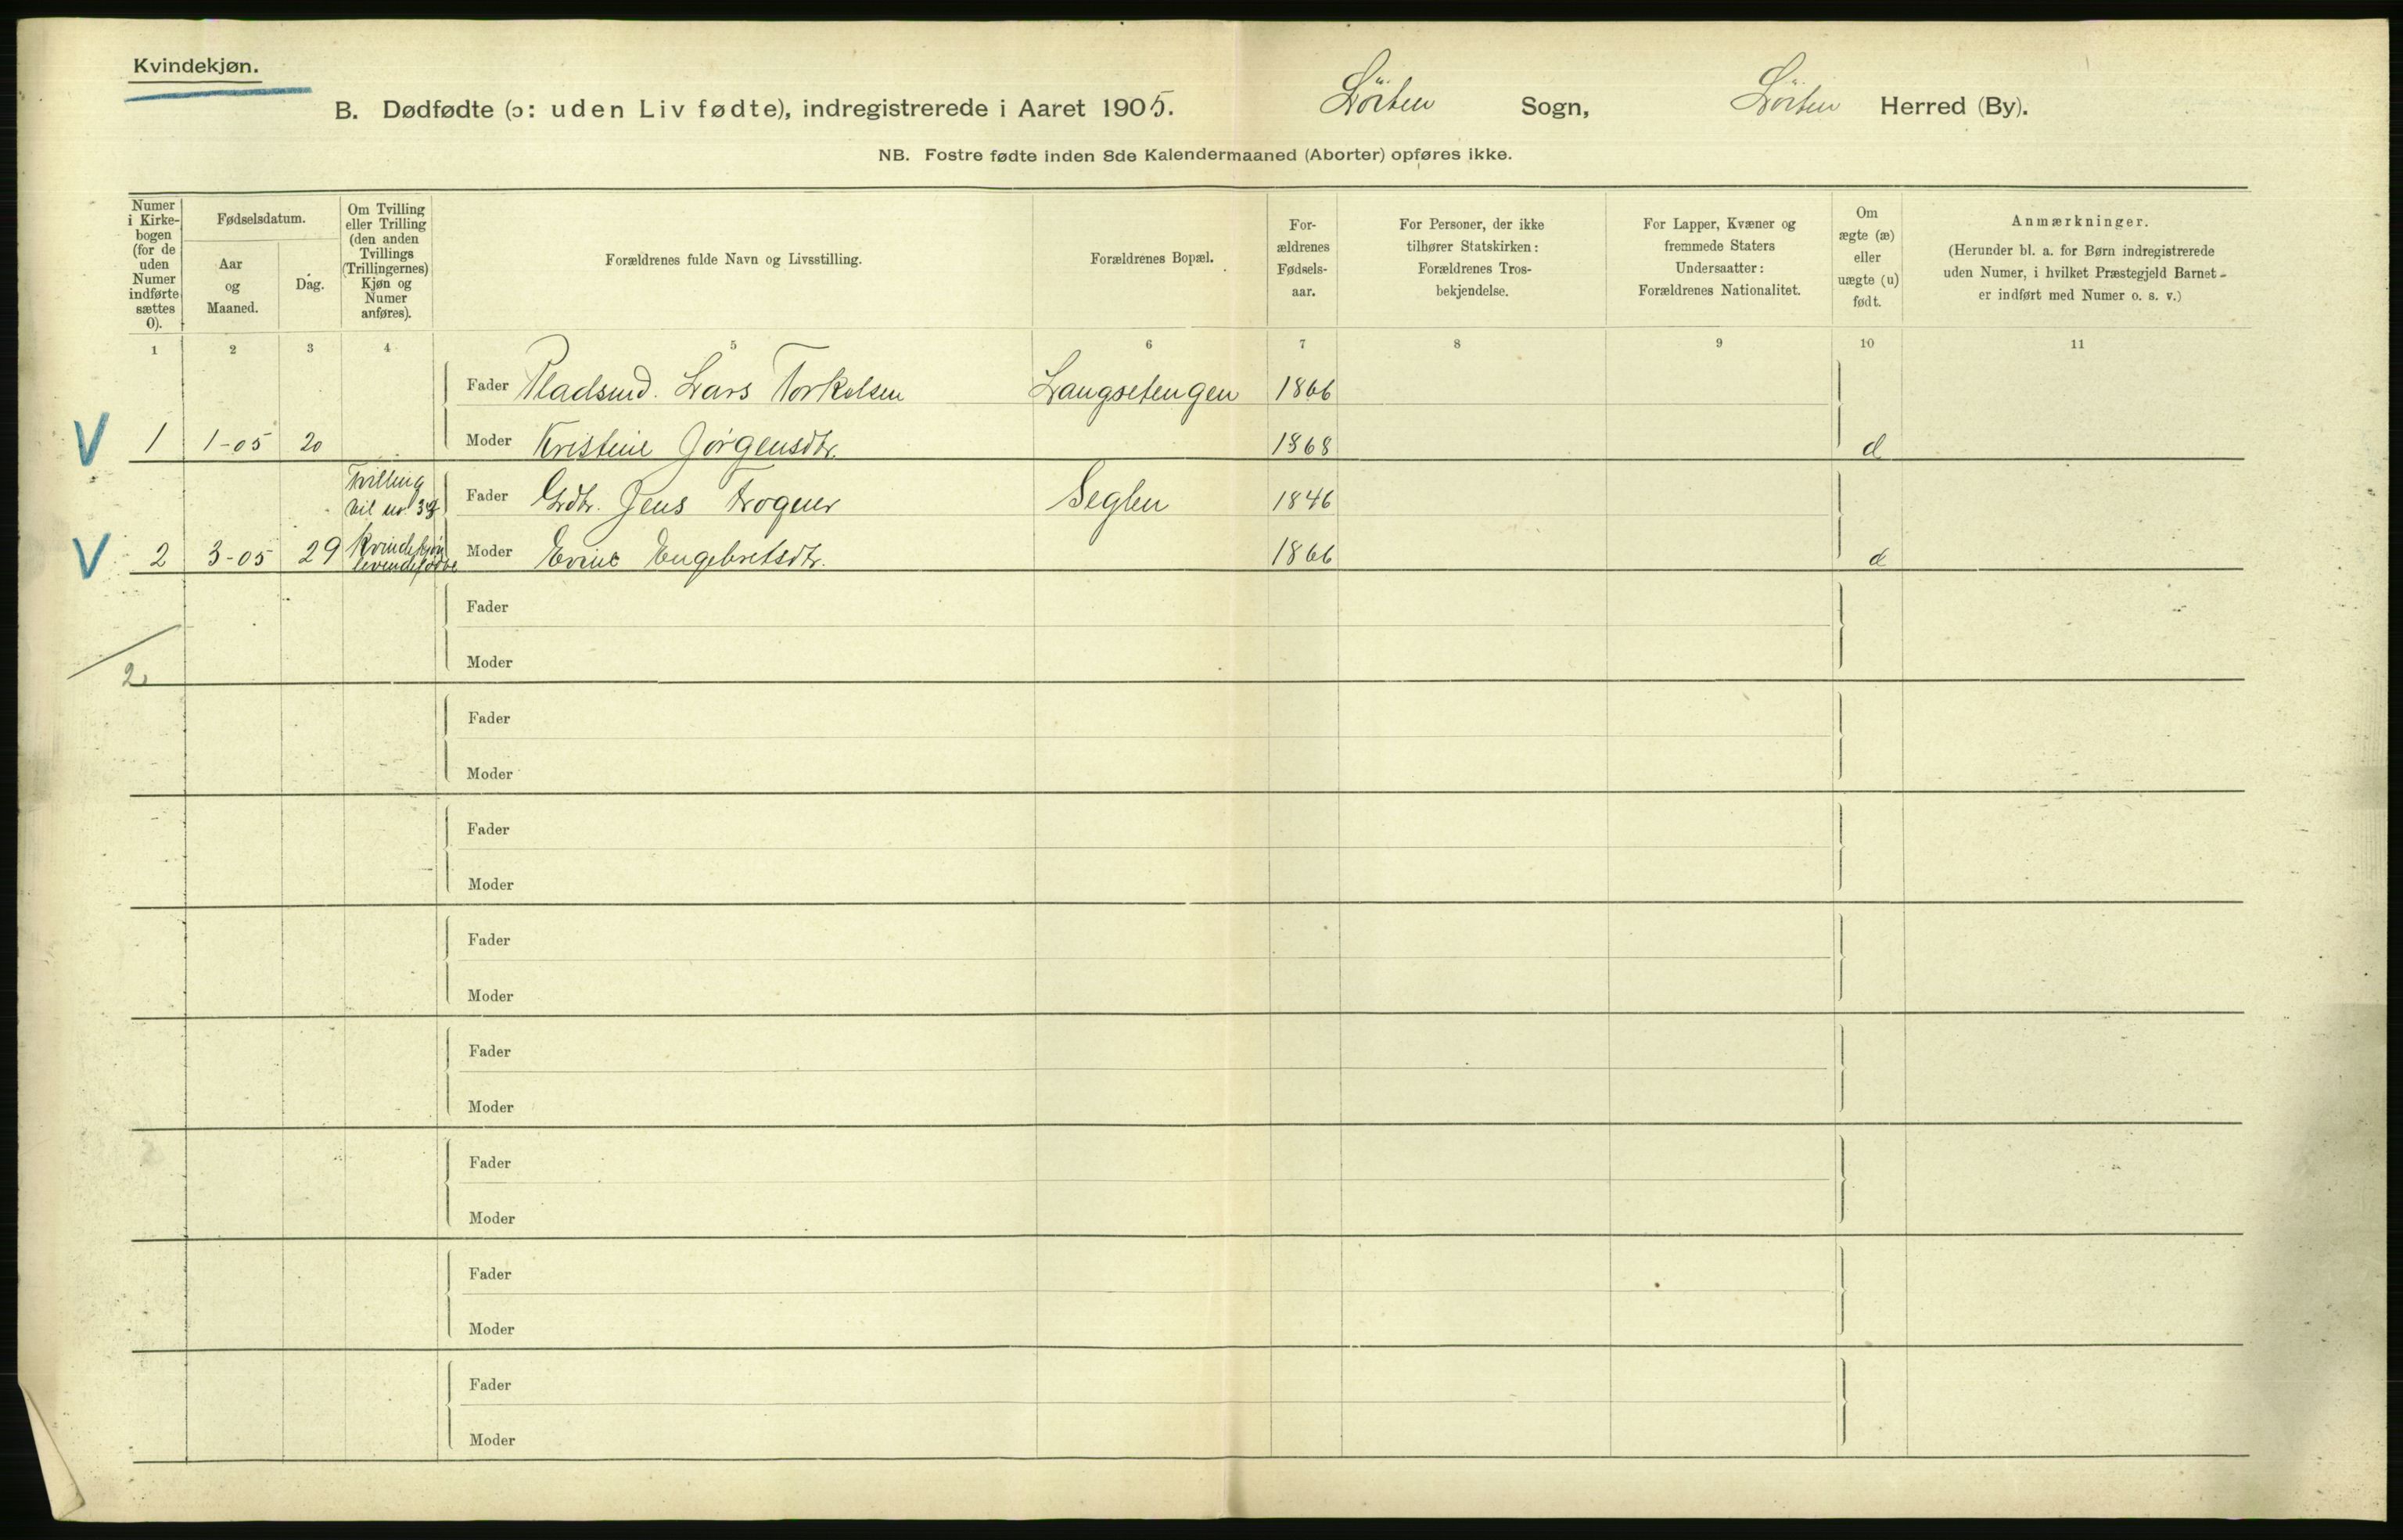 Kvindekjøn.
B. Dødfødte (ɔ: uden Liv fødte), indregistrerede i Aaret 1905. Löiten Sogn, Löiten Herred (By).
NB. Fostre fødte inden 8de Kalendermaaned (Aborter) opføres ikke.
Numer
i Kirke-
bogen
(for de
uden
Numer
indførte
sættes
0).
Fødselsdatum.
Aar
og
Maaned.
Dag.
Om Tvilling
eller Trilling
(den anden
Tvillings
(Trillingernes)
Kjøn og
Numer
anføres).
Forældrenes fulde Navn og Livsstilling.
Forældrenes Bopæl.
For-
ældrenes
Fødsels-
aar.
For Personer, der ikke
tilhører Statskirken:
Forældrenes Tros-
bekjendelse.
For Lapper, Kvæner og
fremmede Staters
Undersaatter:
Forældrenes Nationalitet.
Om
ægte (æ)
eller
uægte (u)
født.
Anmærkninger.
(Herunder bl. a. for Børn indregistrerede
uden Numer, i hvilket Præstegjeld Barnet
er indført med Numer o. s. v.)
1 2 3 4 5 6 7 8 9 10 11
Fader Pladsmd. Lars Torkelsen Langsetengen 1866
V 1 1-05 20 Moder Kristine Jørgensdtr. 1868 æ
Tvilling
til nr. Fader Grdbr. Jens Frogner Seglen 1846
V 2 3-05 29 Kvindekjøn Moder Evine Engebretsdtr. 1866 æ
levendefødte
Fader
Moder
2
Fader
Moder
Fader
Moder
Fader
Moder
Fader
Moder
Fader
Moder
Fader
Moder
Fader
Moder